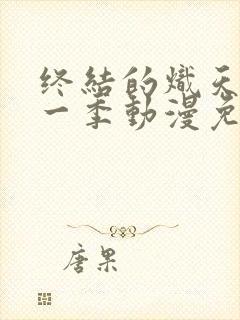 终结的炽天
一季动漫免
唐果